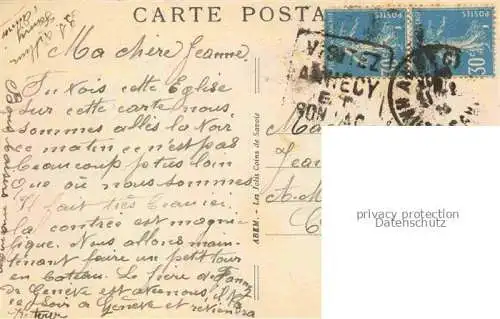 CARTE POSTA
Ma chère Jeanne.
Tu vois cette Eglise
sur cette carte nous
sommes allés la voir
ce matin ce n'est pas
beaucoup plus loin
que où nous sommes
Il fait très beau ici
la contrée est magni-
fique. Nous allons main-
tenant faire un petit tour
en bateau. Le frère de
de Genève est avec nous, il
ce soir à Genève et reviendra
Bons baisers maman
ABEM. — Les Jolis Coins de Savoie
VISITEZ
ANNECY
ET
SON LAC
POSTES
30c
POSTES
30c
Ma
Jea
A. M
C
privacy protection
Datenschutz